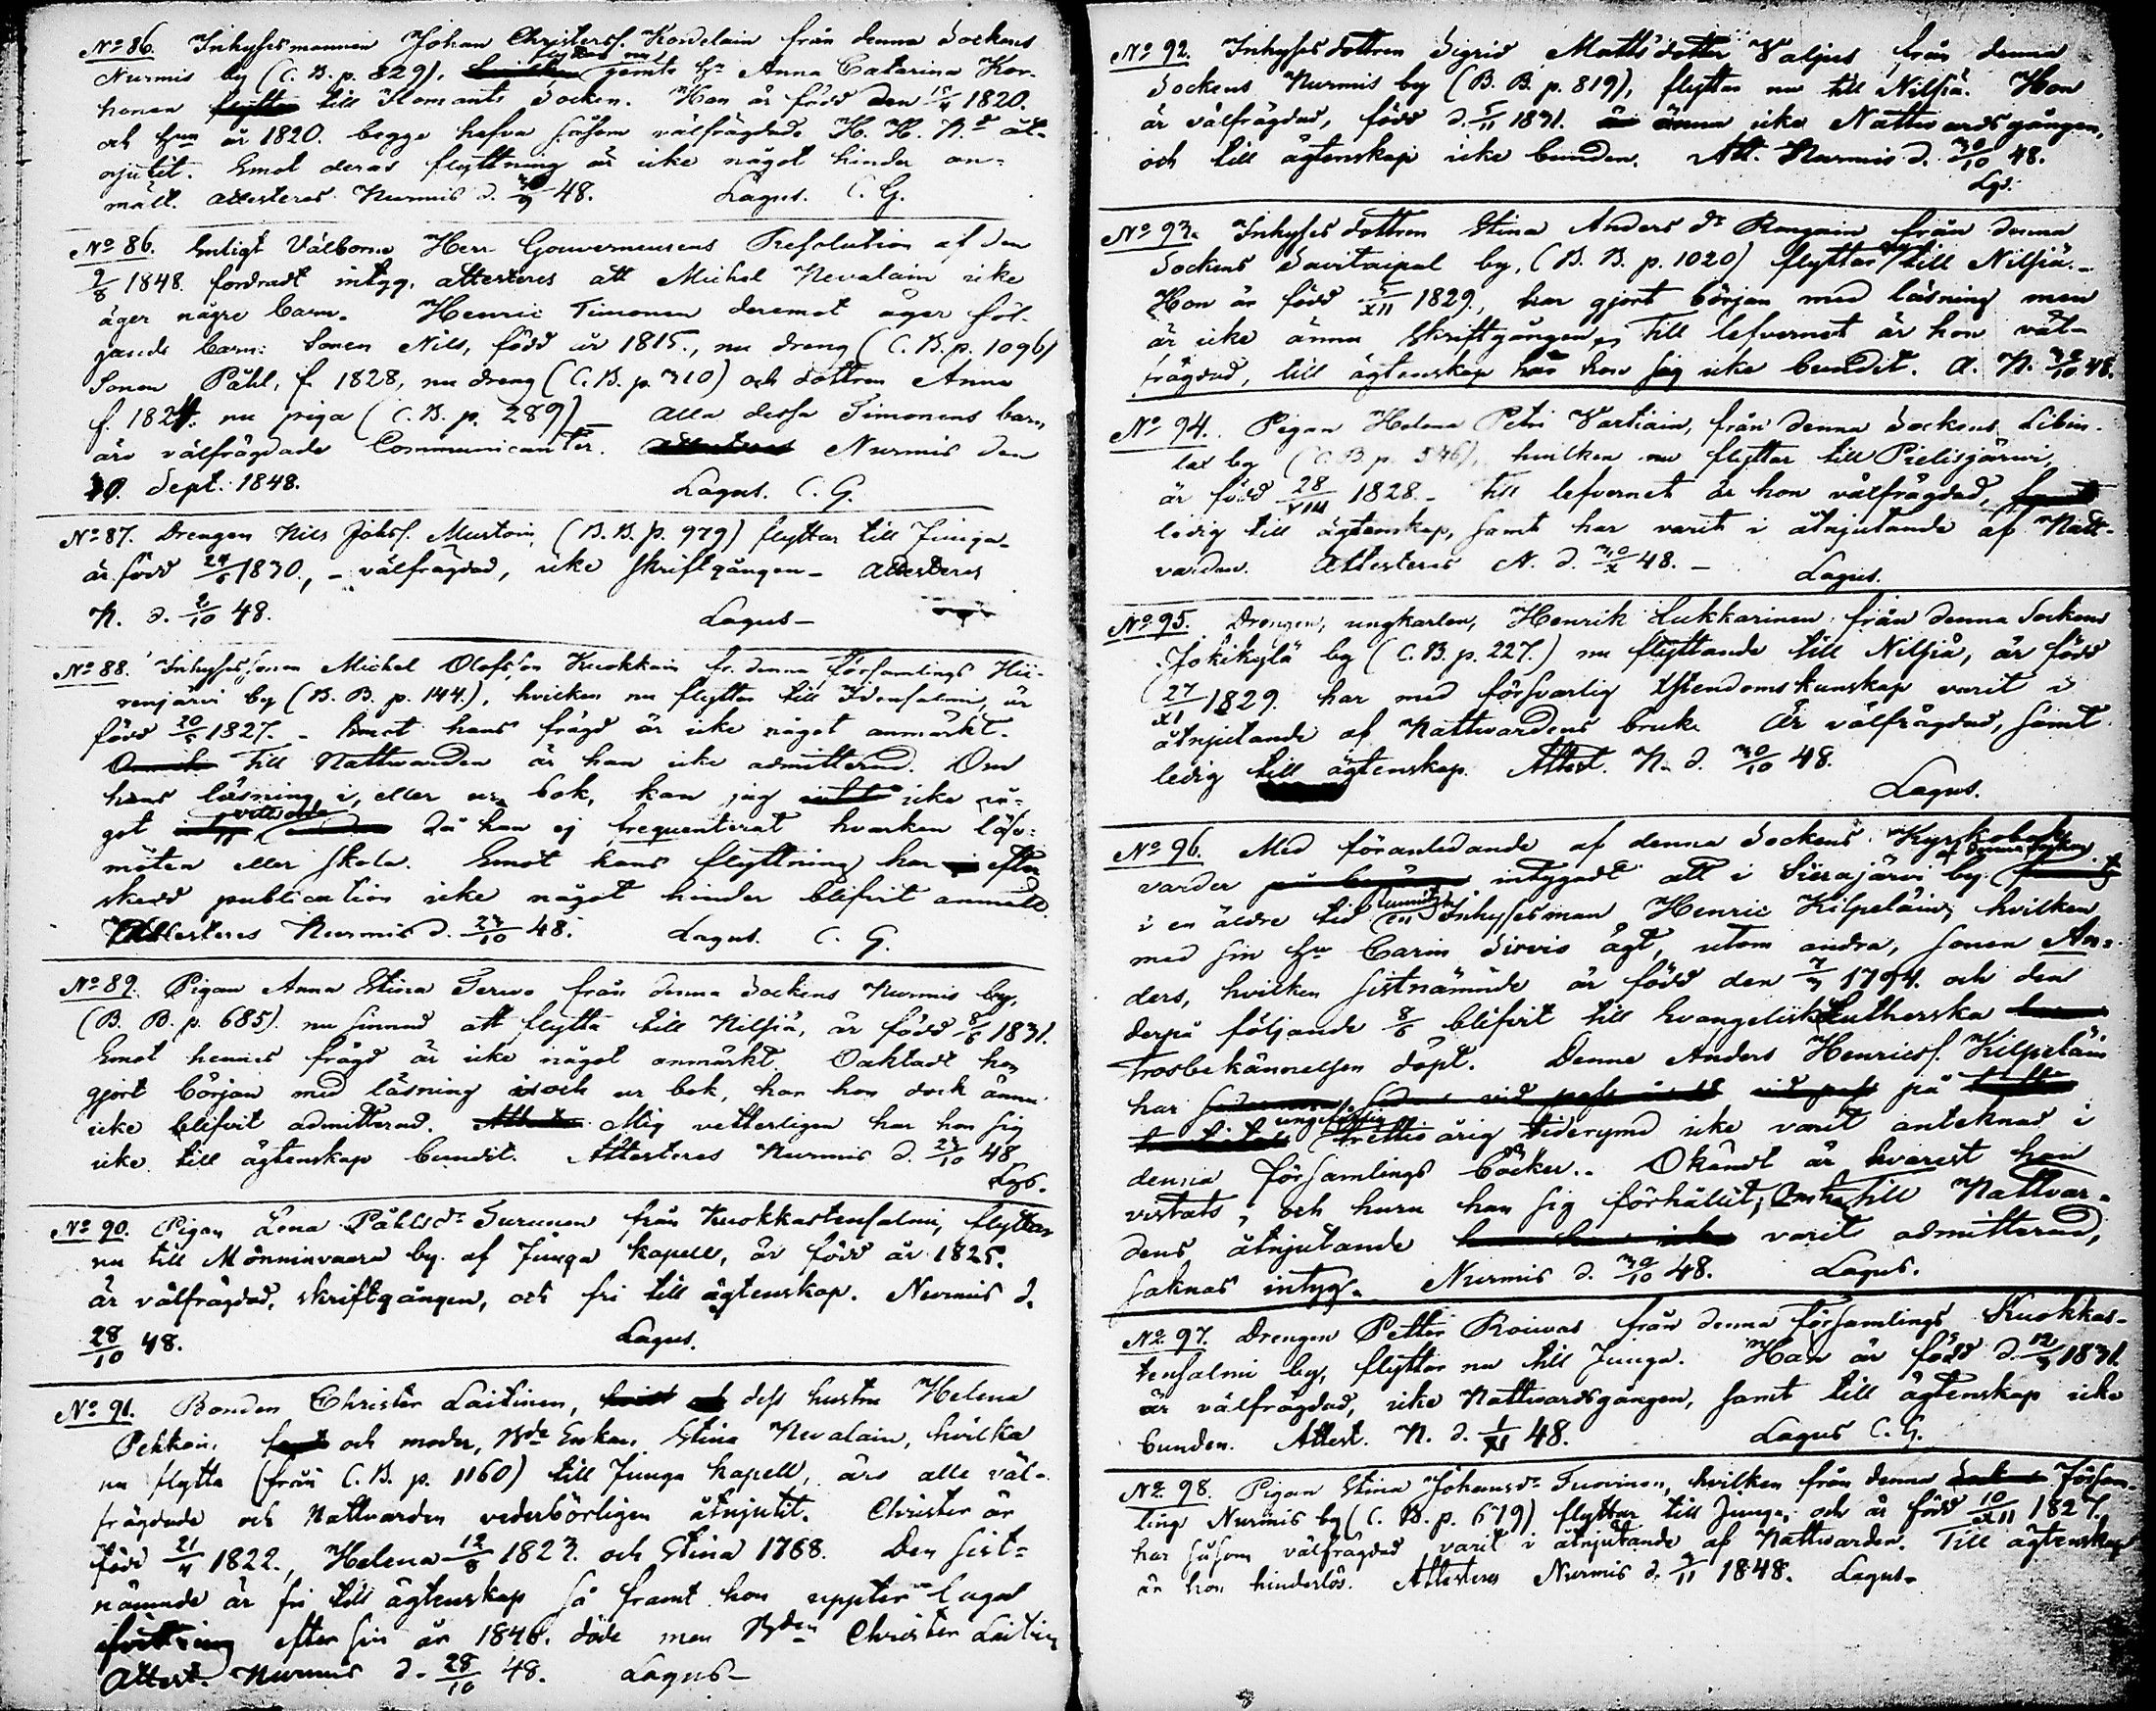 No 86. Inhysesmannen Johan Christerss. Kordelain från denna Sockens
Nurmis by (C. B. p. 829), flyttar nu jemte Hu Anna Catarina Kor-
honen till Ilomants Socken. Han är född den 15/4 1820.
och Hun år 1820. begge hafva såsom välfrägdade H. H. N.d åt-
njutit. Emot deras flyttning är icke något hinder an-
mält. Attesteras Nurmis d. 30/9 48. Lagus. C. G.
No 86. Enligt Välborne Herr Gouverneurens Resolution af den
9/8 1848. fordradt intyg, attesteras att Michel Nevalain icke
äger några barn. Henric Timonen deremot äger föl-
jande barn: Sonen Nils, född år 1815., nu dreng (C. B. p. 1096)
Sonen Påhl, f. 1828, nu dreng (C. B. p. 310) och dottren Anna
f. 1824. nu piga (C. B. p. 289) Alla dessa Timonens barn,
äro välfrägdade Communicanter. Nurmis den
10. Sept. 1848. Lagus. C. G.
No 87. Drengen Nils Johss. Mustoin, (B. B. p. 979) flyttar till Junga-
är född 24/5 1830., - välfrägdad, icke skriftgången - Attesteras
N. d. 21/10 48. Lagus -
No 88. Inhyses sonen Michel Olofsson Kuokkain fr. denna församlings Hii-
renjärvi by (B. B. p. 144.), hvilken nu flyttar till Idensalmi, är
född 20/5 1827. - Emot hans frägd är icke något anmärkt.
Till Nattwarden är han icke admitterad. Om
hans läsning i, eller ur bok, kan jag icke nå-
got vitsorda då han ej frequenterat hvarken läse-
möten eller skola. Emot hans flyttning har efter
skedd publication icke något hinder blifvit anmäldt.
Attesteras Nurmis d. 23/10 48. Lagus. C. G.
No 89. Pigan Anna Stina Tervo från denna Sockens Nurmis by,
(B. B. p. 685). nu sinnad att flytta till Nilsiä, är född 8/6 1831.
Emot hennes frägd är icke något anmärkt. Oaktadt hon
gjort början med läsning i och ur bok, har hon dock ännu
icke blifvit admitterad. Mig vetterligen har hon sig
icke till ägtenskap bundit. Attesteras Nurmis d. 23/10 48
Lgs.
No 90. Pigan Lena Påhlsdr Turunen från Kuokkastensalmi, flyttar
nu till Mönninvaara by af Junga kapell, är född år 1825.
är välfrägdad, skriftgången, och fri till ägtenskap. Nurmis d.
28/10 48. Lagus.
No 91. Bonden Christer Laitinen, dess hustru Helena
Pekkain, och moder, Bde Enkan Stina Nevalain, hvilka
nu flytta (från C. B. p. 1160) till Junga kapell, äro alla väl-
frägdade och Nattvarden vederbörligen åtnjutit. Christer är
född 21/4 1822., Helena 12/8 1823. och Stina 1768. Den sist-
nämnde är fri till ägtenskap så framt hon uppter laga
efter sin år 1846. döde man Bden Christer Laitin
Attest. Nurmis d. 28/10 48. Lagus -
No 92. Inhyses dottren Sigrid Matts dotter Valjus från denna
Sockens Nurmis by (B. B. p. 819), flyttar nu till Nilsiä. Hon
är välfrägdad, född d. 5/11 1831. ännu icke Nattvardsgången,
och till ägtenskap icke bunden. Att. Nurmis d. 30/10 48.
Lgs.
No 93. Inhyses dottren Stina Anders dr Rongain från denna
Sockens Savikaipal by, (B. B. p. 1020) flyttar till Nilsiä. -
Hon är född 5/XII 1829., har gjort början med läsning men
är icke ännu skriftgången. Till lefvernet är hon väl-
frägdad, till ägtenskap har hon sig icke bundit. A. N. 30/10 48.
No 94. Pigan Helena Petri Vartiain, från denna Sockens Libin-
lax by (C. B. p. 546), hvilken nu flyttar till Pielisjärvi,
är född 28/VIII 1828. - Till lefvernet är hon välfrägdad,
ledig till ägtenskap, samt har varit i åtnjutande af Natt-
varden. Attesteras N. d. 30/X 48. - Lagus.
No 95. Drengen, ungkarlen, Henrik Lukkarinen från denna Sockens
Jokikylä by (C. B. p. 227.) nu flyttande till Nilsiä, är född
27/XI 1829. har med försvarlig Xstendomskunskap varit i
åtnjutande af Nattwardens bruk. Är välfrägdad, samt
ledig till ägtenskap. Attest. N. d. 30/10 48.
Lagus.
No 96. Med föranledande af denna Sockens Kyrkobok
varder intygadt att i Sierajärvi by
i en äldre tid funnits en Inhysesman Henric Kilpeläin, hvilken
med sin Hu Carin Sirvio ägt, utom andra, sonen An-
ders, hvilken sistnämnde är född den 7/3 1794. och den
derpå följande 8/6 blifvit till Evangelisk Lutherska
Trosbekännelsen döpt. Denne Anders Henricss. Kilpeläin
har på
ungefärlig trettio årig tiderymd icke varit anteknad i
denna församlings böcker. Okändt är hvarest han
vistats, och huru han sig förhållit; Om han till Nattvar-
dens åtnjutande varit admitterad,
saknas intyg. Nurmis d. 30/10 48. Lagus.
No 97. Drengen Petter Roivas från denna församlings Kuokkas-
tensalmi by, flyttar nu till Junga. Han är född d. 12/3 1831.
är välfrägdad, icke Nattvardsgången, samt till ägtenskap icke
bunden. Attest. N. d. 1/XI 48. Lagus C. G.
No 98. Pigan Stina Johansdr Tuovinen, hvilken från denna Försam-
lings Nurmis by (C. B. p. 679) flyttar till Junga, och är född 10/XII 1827.
har såsom välfrägdad varit i åtnjutande af Nattvarden. Till ägtenskap
är hon hinderlös. Attesteras Nurmis d. 3/11 1848. Lagus -